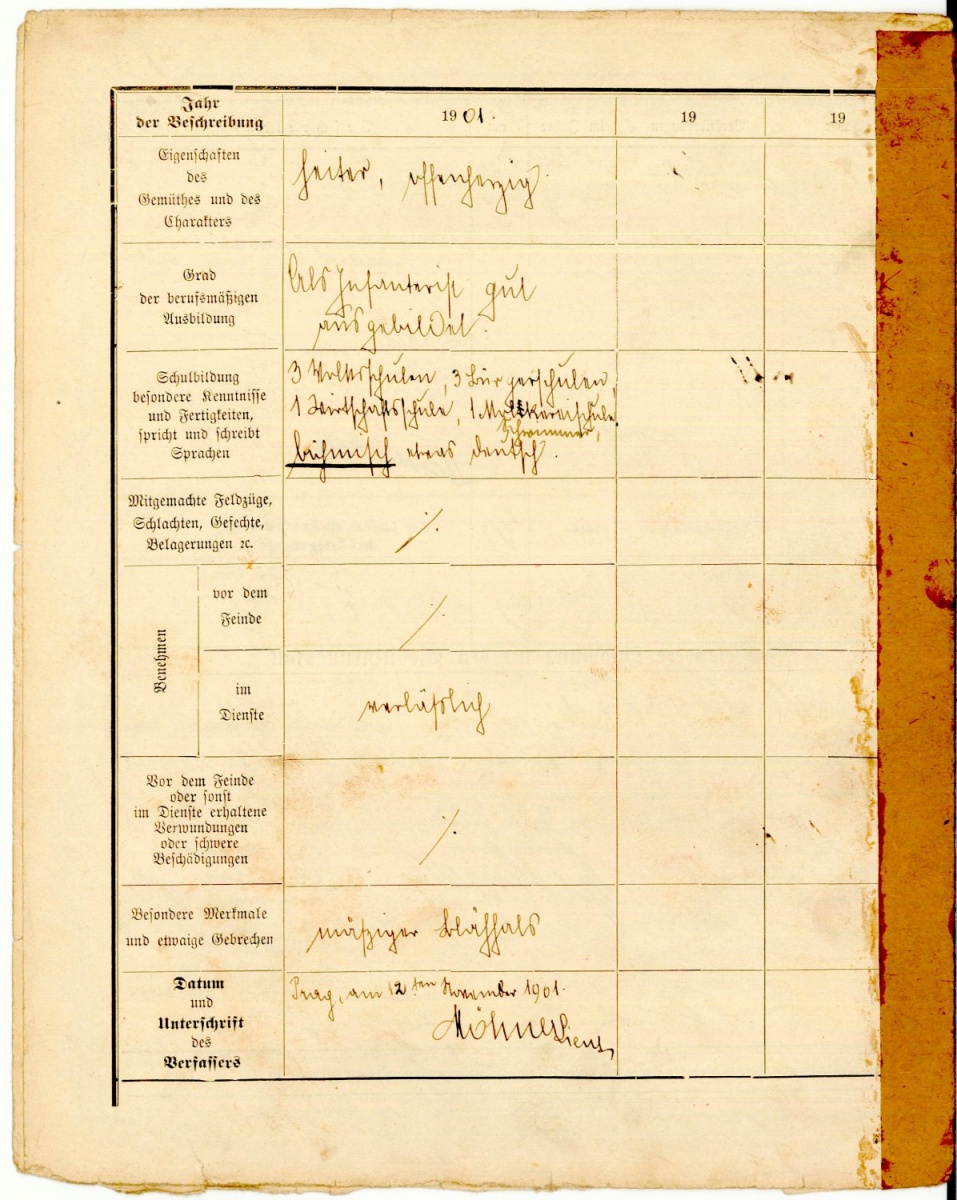 Jahr
der Beschreibung
19 01.
19
19
Eigenschaften
des
Gemüthes und des
Charakters
heiter, offenherzig
Grad
der berufsmäßigen
Ausbildung
Als Infanterist gut
ausgebildet.
Schulbildung
besondere Kenntnisse
und Fertigkeiten,
spricht und schreibt
Sprachen
3 Volksschulen, 3 Bürgerschulen,
1 Wirtschaftsschule, 1 Molkereischule,
Schwimmer,
böhmisch etwas deutsch.
Mitgemachte Feldzüge,
Schlachten, Gefechte,
Belagerungen ꝛc.
·/.
Benehmen
vor dem
Feinde
·/.
im
Dienste
verläßlich
Vor dem Feinde
oder sonst
im Dienste erhaltene
Verwundungen
oder schwere
Beschädigungen
·/.
Besondere Merkmale
und etwaige Gebrechen
mäßiger Blähhals
Datum
und
Unterschrift
des
Verfassers
Prag, am 12ten November 1901.